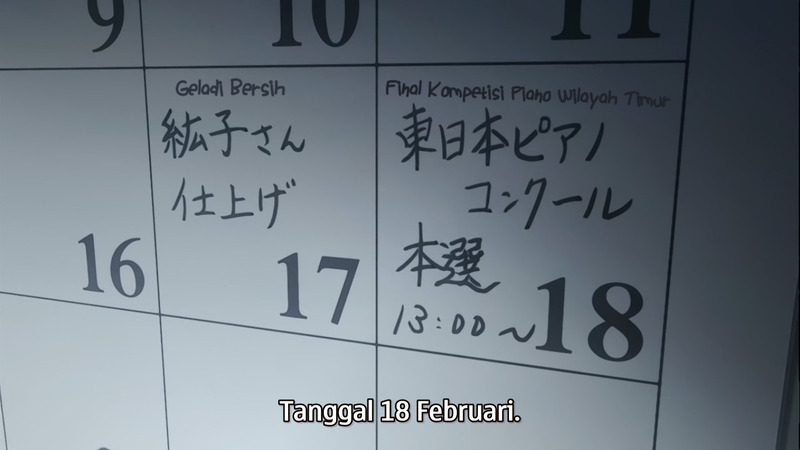 9
10
11
Geladi Bersih
紘子さん
仕上げ
Final Kompetisi Piano Wilayah Timur
東日本ピアノ
コンクール
本選
13:00~
16
17
18
Tanggal 18 Februari.